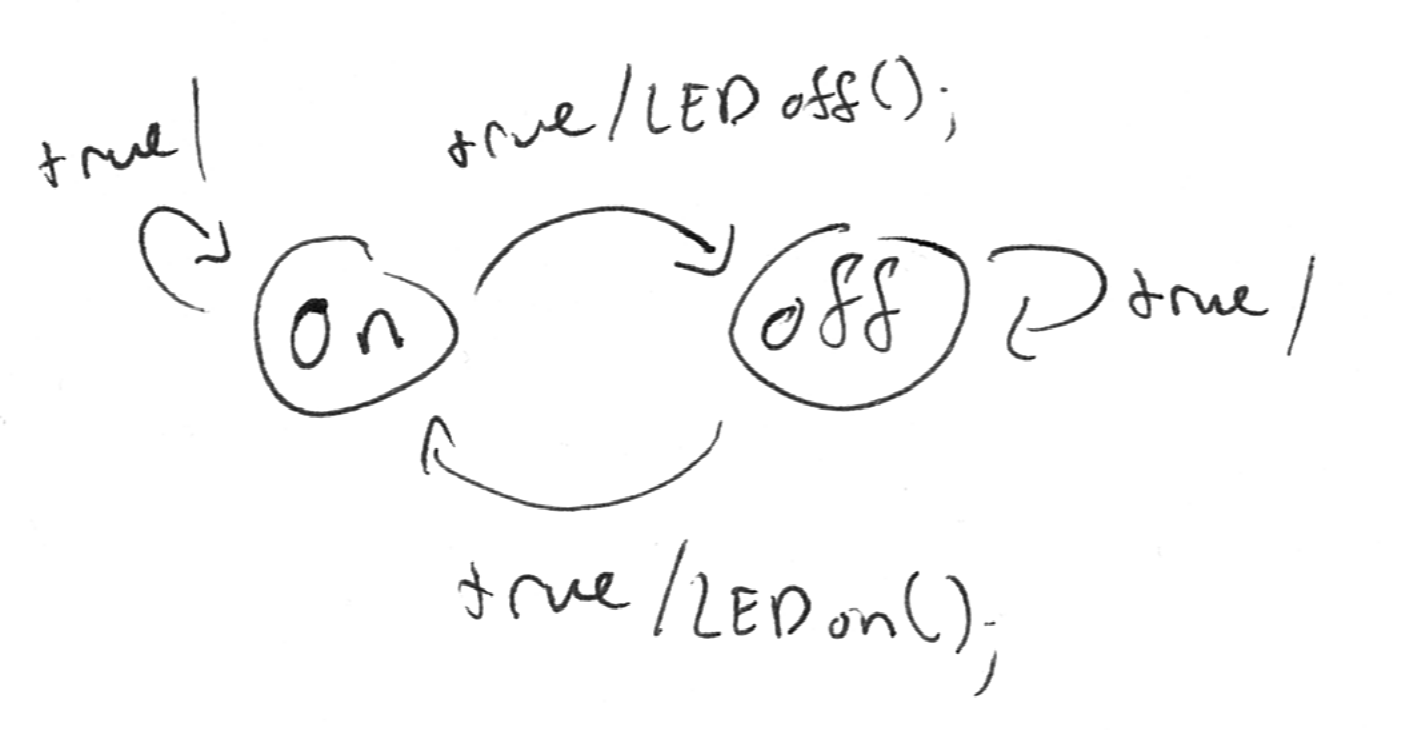 true/
true/LED off();
On
off
true/
true/LED on();